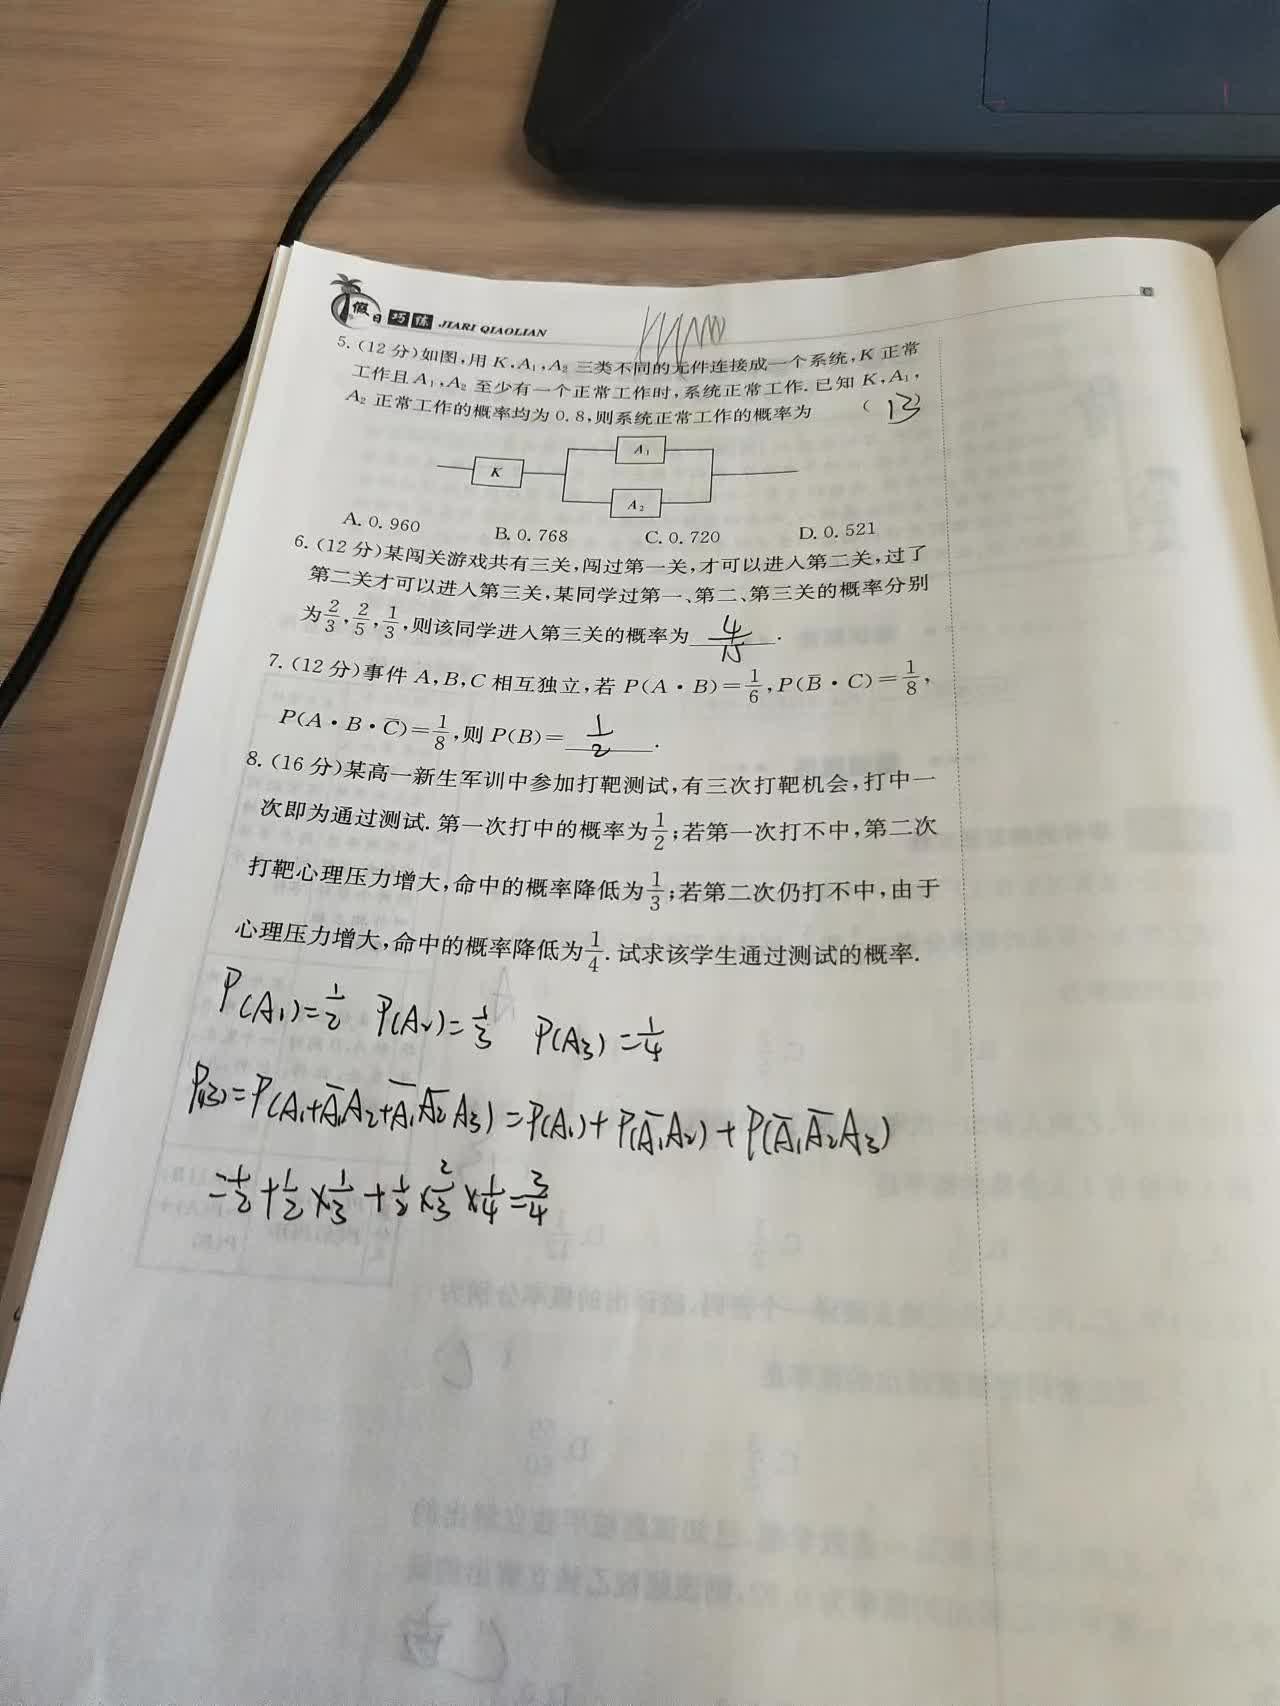 假日巧练 JIARI QIAOLIAN
5.(12分)如图,用K,A₁,A₂三类不同的元件连接成一个系统,K正常
工作且A₁,A₂至少有一个正常工作时,系统正常工作.已知K,A₁,
A₂正常工作的概率均为0.8,则系统正常工作的概率为 ( B )
A₁
K
A₂
A.0.960 B.0.768 C.0.720 D.0.521
6.(12分)某闯关游戏共有三关,闯过第一关,才可以进入第二关,过了
第二关才可以进入第三关,某同学过第一、第二、第三关的概率分别
为2/3,2/5,1/3,则该同学进入第三关的概率为 4/15 .
7.(12分)事件A,B,C相互独立,若P(A·B)=1/6,P(B̅·C)=1/8,
P(A·B·C̅)=1/8,则P(B)= 1/2 .
8.(16分)某高一新生军训中参加打靶测试,有三次打靶机会,打中一
次即为通过测试.第一次打中的概率为1/2;若第一次打不中,第二次
打靶心理压力增大,命中的概率降低为1/3;若第二次仍打不中,由于
心理压力增大,命中的概率降低为1/4.试求该学生通过测试的概率.
P(A₁)=1/2 P(A₂)=1/3 P(A₃)=1/4
P(B)=P(A₁+A̅₁A₂+A̅₁A̅₂A₃)=P(A₁)+P(A̅₁A₂)+P(A̅₁A̅₂A₃)
=1/2+1/2×1/3+1/2×2/3×1/4=3/4